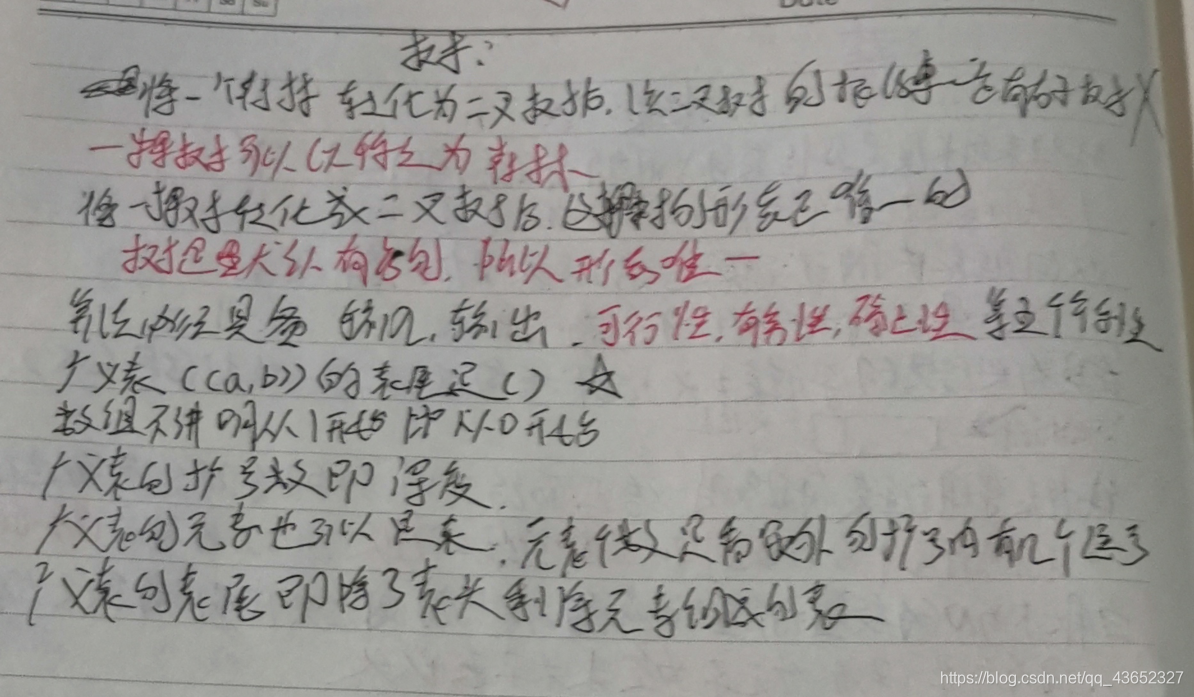 Date
树:
将一个树转化为二叉树后,该二叉树的根结点一定有右子树 X
一棵树可以仅仅为
将一棵树转化成二叉树后,这棵树的形态是唯一的
树总是 没有右的,所以形态唯一
算法必须具备 输入,输出,可行性,有穷性,确定性 等五个特性
广义表((a,b))的表尾是() ☆
数组不讲明从1开始即从0开始
广义表的括号数即深度.
广义表的元素也可以是表,元素个数只需看最外的括号内有几个逗号
广义表的表尾即除了表头剩余元素组成的表
https://blog.csdn.net/qq_43652327